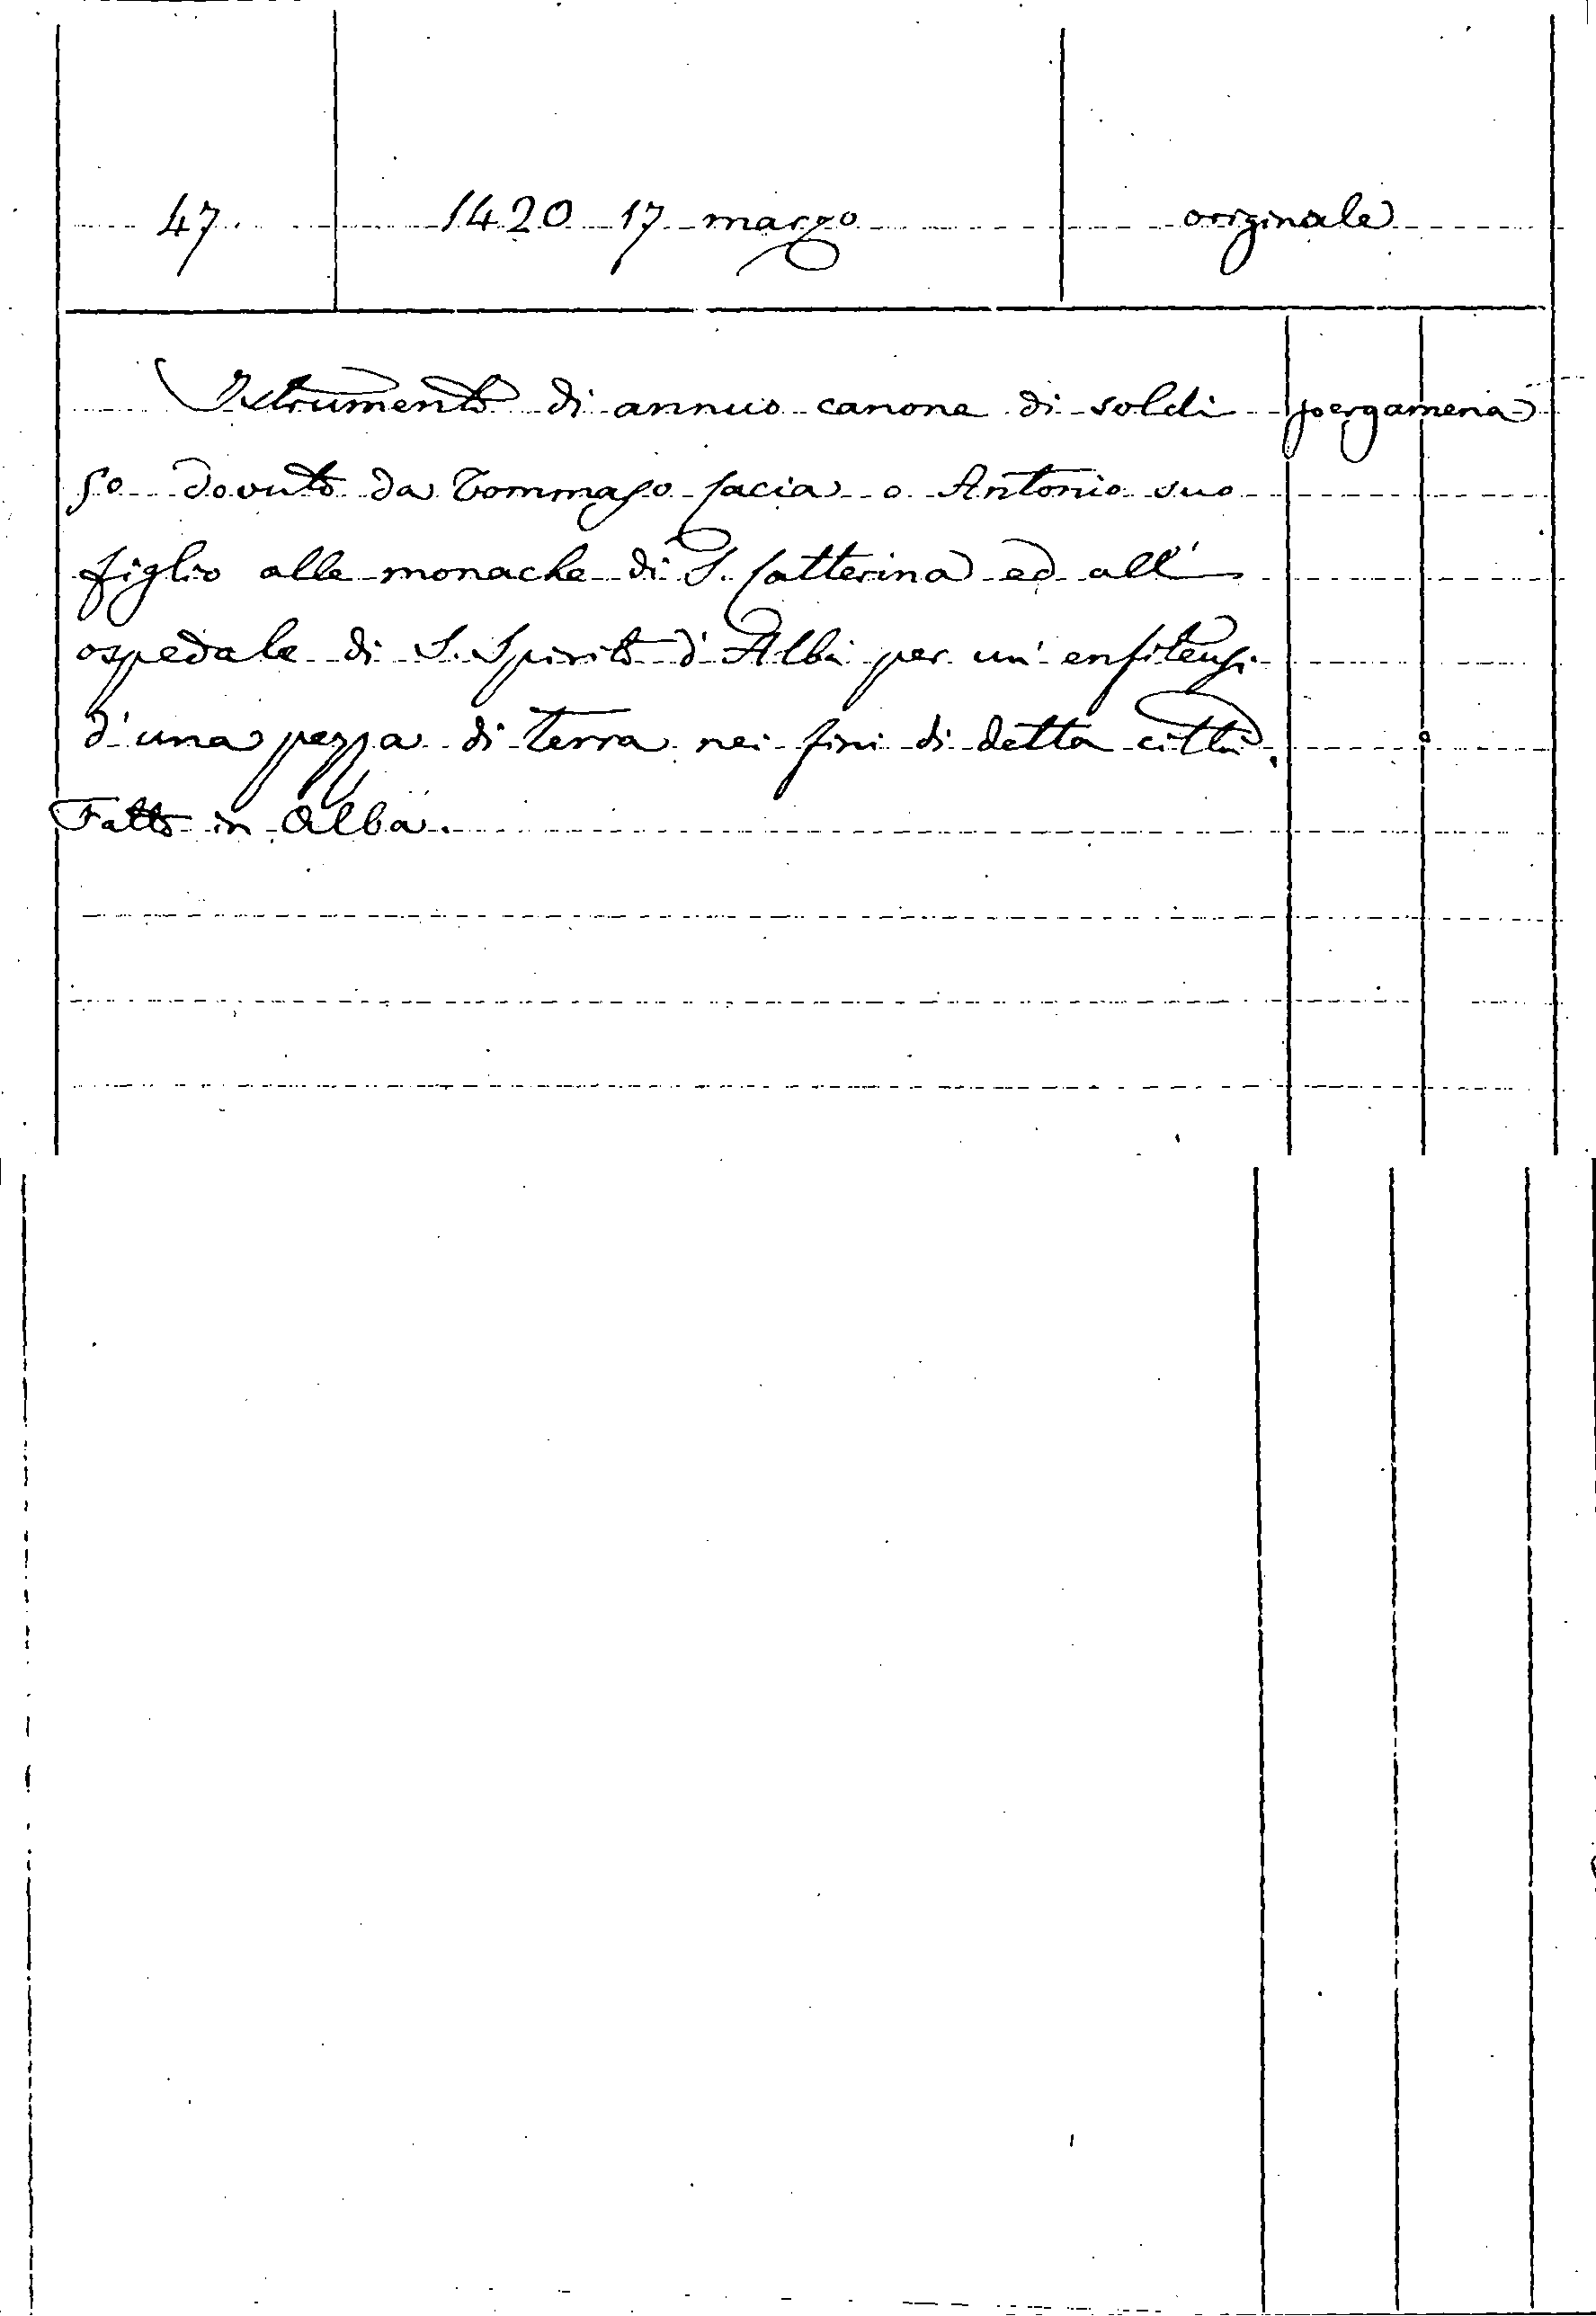 47. 1420 17 marzo originale
Istrumento di annuo canone di soldi pergamena
50 dovuto da Tommaso Cacia o Antonio suo
figlio alle monache di S. Catterina ed all'
ospedale di S. Spirito d'Alba per un' enfiteusi
d'una pezza di terra nei fini di detta città.
Fatto in Alba.